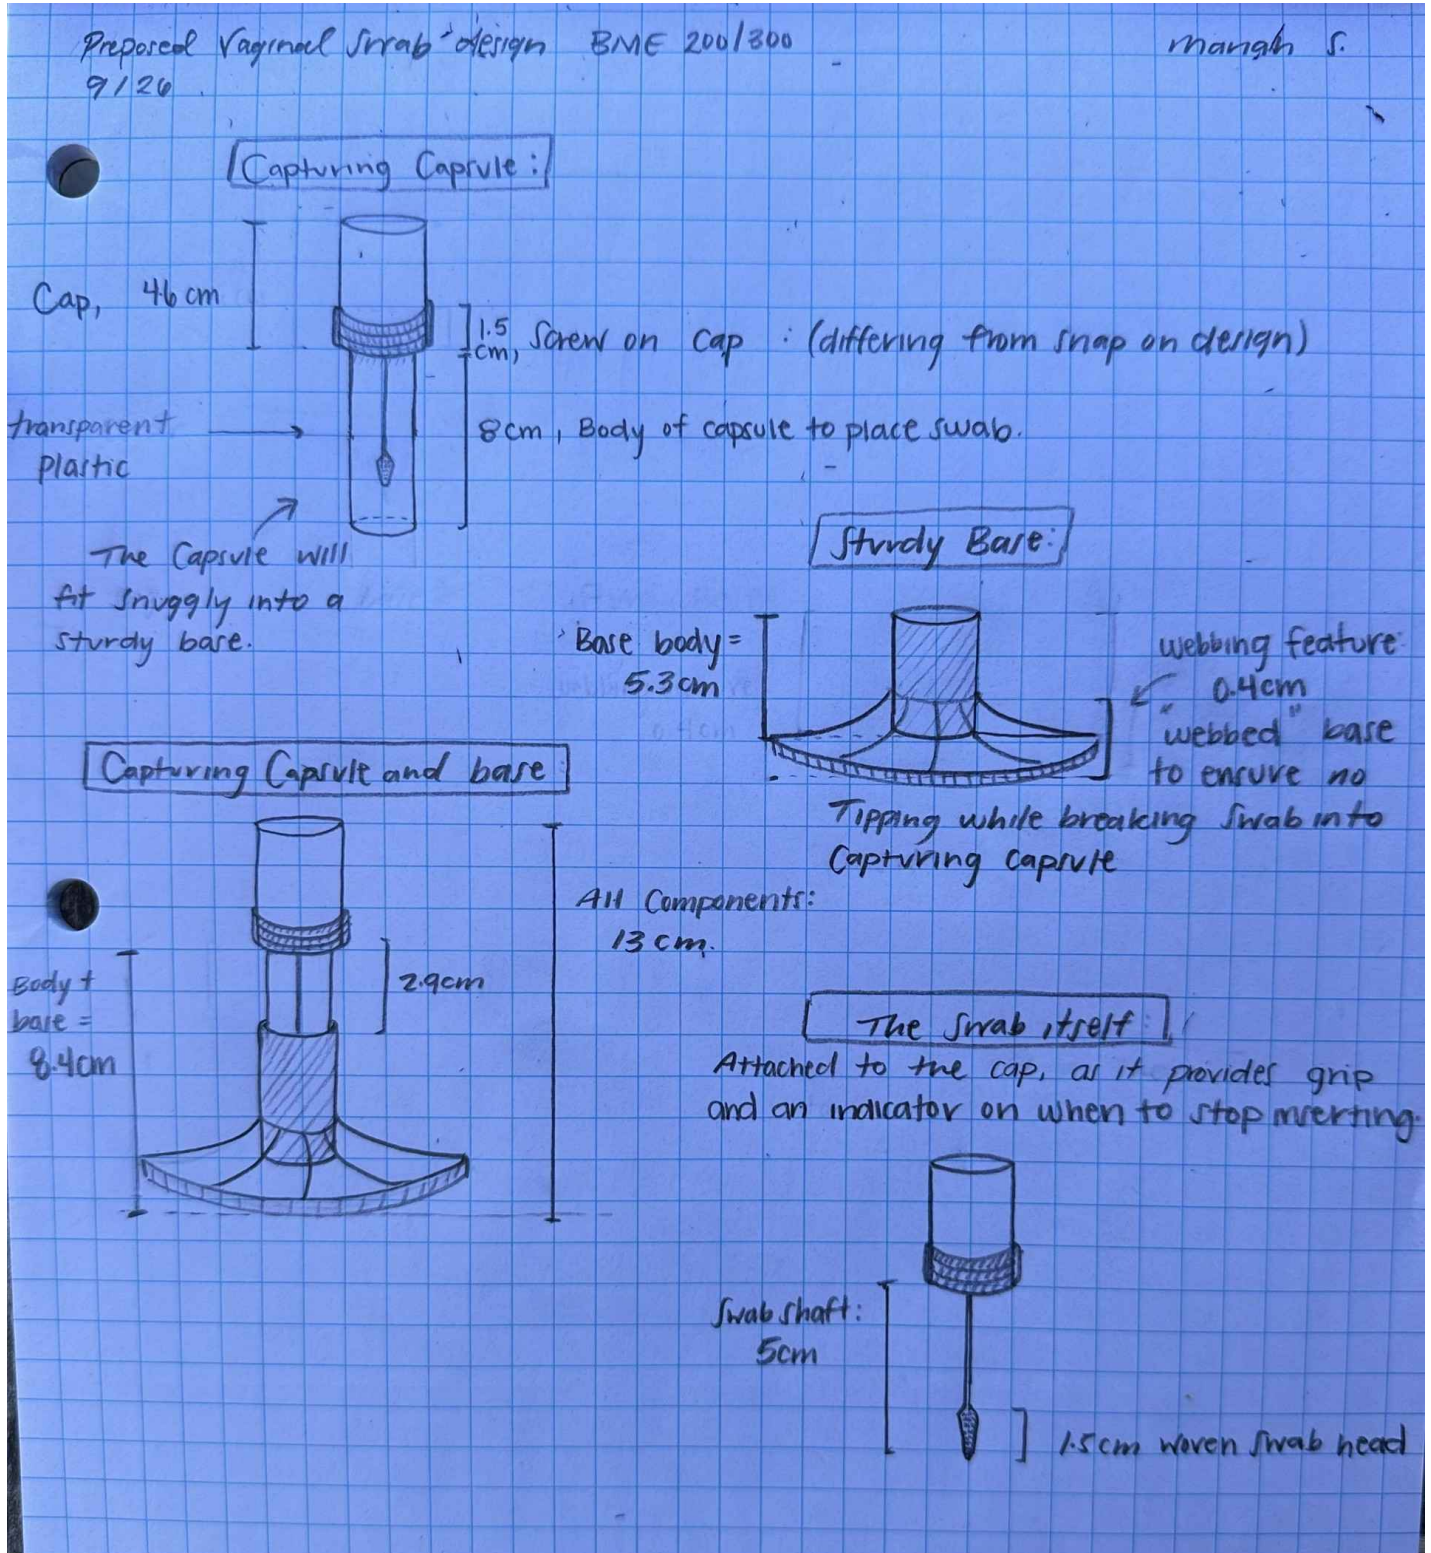 Proposed Vaginal Swab design BME 200/300
S.
9/26
Capturing Capsule:
Cap, 4.6 cm
1.5
cm, Screw on cap : (differing from snap on design)
transparent
plastic
8cm, Body of capsule to place swab.
The Capsule will
fit snuggly into a
sturdy base.
Sturdy Base:
Base body =
5.3cm
webbing feature:
0.4cm
"webbed" base
to ensure no
Tipping while breaking Swab into
Capturing capsule
Capturing Capsule and base
All Components:
13 cm.
Body +
base =
8.4cm
2.9cm
The Swab itself:
Attached to the cap, as it provides grip
and an indicator on when to stop inserting.
Swab shaft:
5cm
1.5cm woven swab head